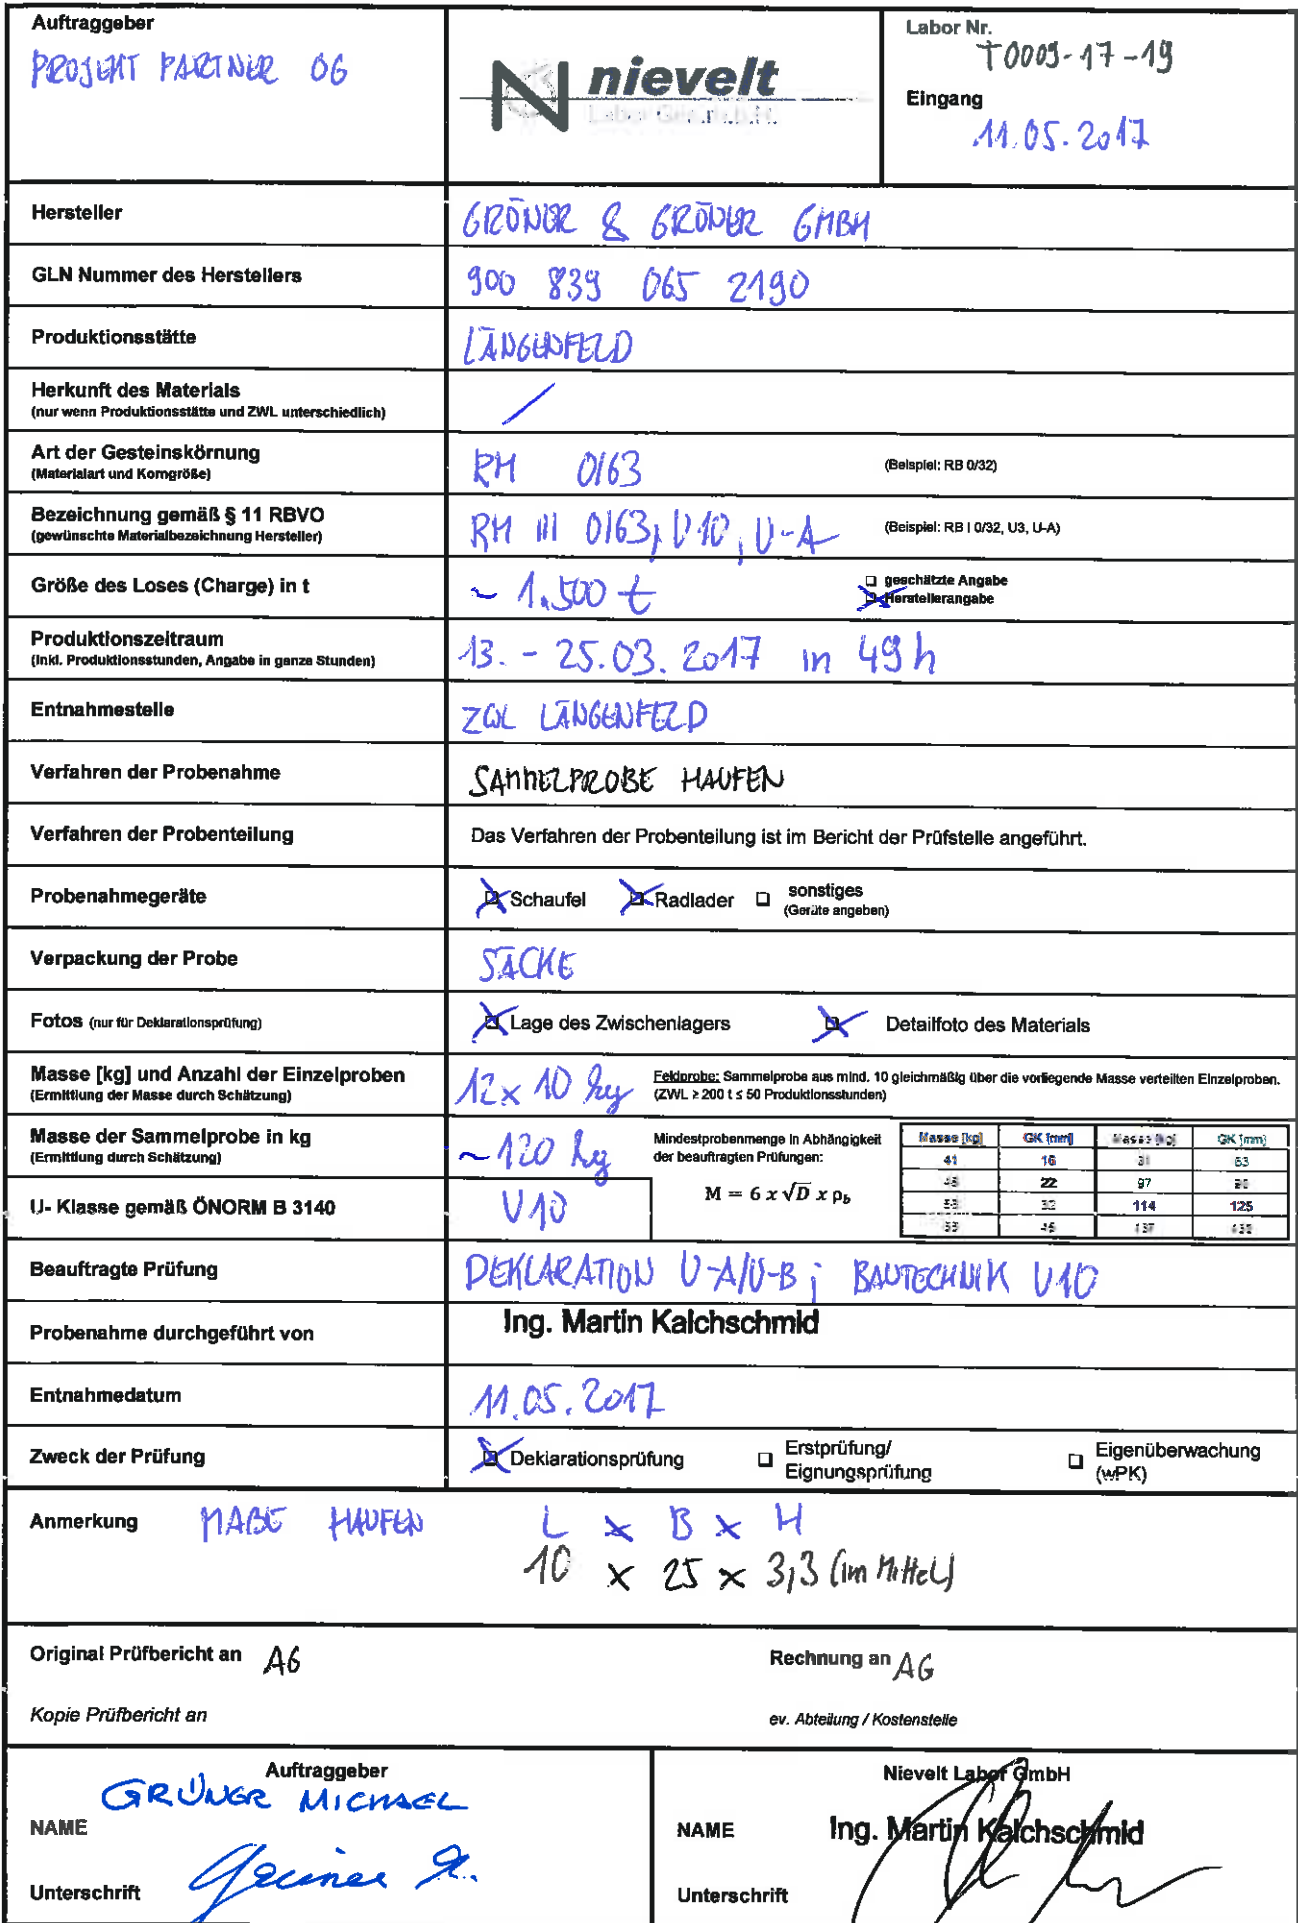 Auftraggeber
PROJEKT PARTNER OG
nievelt
Labor Ges.m.b.H.
Labor Nr.
T0009-17-19
Eingang
11.05.2017
Hersteller
GRÜNER & GRÜNER GMBH
GLN Nummer des Herstellers
900 839 065 2190
Produktionsstätte
LÄNGENFELD
Herkunft des Materials
(nur wenn Produktionsstätte und ZWL unterschiedlich)
/
Art der Gesteinskörnung
(Materialart und Korngröße)
RM 0/63
(Beispiel: RB 0/32)
Bezeichnung gemäß § 11 RBVO
(gewünschte Materialbezeichnung Hersteller)
RM III 0/63, U10, U-A
(Beispiel: RB I 0/32, U3, U-A)
Größe des Loses (Charge) in t
~ 1.500 t
geschätzte Angabe
Herstellerangabe
Produktionszeitraum
(inkl. Produktionsstunden, Angabe in ganze Stunden)
13. - 25.03.2017 in 49 h
Entnahmestelle
ZWL LÄNGENFELD
Verfahren der Probenahme
SAMMELPROBE HAUFEN
Verfahren der Probenteilung
Das Verfahren der Probenteilung ist im Bericht der Prüfstelle angeführt.
Probenahmegeräte
Schaufel Radlader sonstiges
(Geräte angeben)
Verpackung der Probe
SÄCKE
Fotos (nur für Deklarationsprüfung)
Lage des Zwischenlagers Detailfoto des Materials
Masse [kg] und Anzahl der Einzelproben
(Ermittlung der Masse durch Schätzung)
12 x 10 kg
Feldprobe: Sammelprobe aus mind. 10 gleichmäßig über die vorliegende Masse verteilten Einzelproben.
(ZWL ≥ 200 t ≤ 50 Produktionsstunden)
Masse der Sammelprobe in kg
(Ermittlung durch Schätzung)
~ 120 kg
Mindestprobenmenge in Abhängigkeit
der beauftragten Prüfungen:
M = 6 x √D x ρb
Masse [kg] GK [mm] Masse [kg] GK [mm]
41 16 63
22 97 90
32 114 125
45 137
U- Klasse gemäß ÖNORM B 3140
U10
Beauftragte Prüfung
DEKLARATION U-A/U-B; BAUTECHNIK U10
Probenahme durchgeführt von
Ing. Martin Kalchschmid
Entnahmedatum
11.05.2017
Zweck der Prüfung
Deklarationsprüfung Erstprüfung/ Eigenüberwachung
Eignungsprüfung (wPK)
Anmerkung MAßE HAUFEN L x B x H
10 x 25 x 3,3 (im Mittel)
Original Prüfbericht an AG
Rechnung an AG
Kopie Prüfbericht an
ev. Abteilung / Kostenstelle
Auftraggeber
GRÜNER MICHAEL
NAME
Unterschrift
Nievelt Labor GmbH
NAME Ing. Martin Kalchschmid
Unterschrift